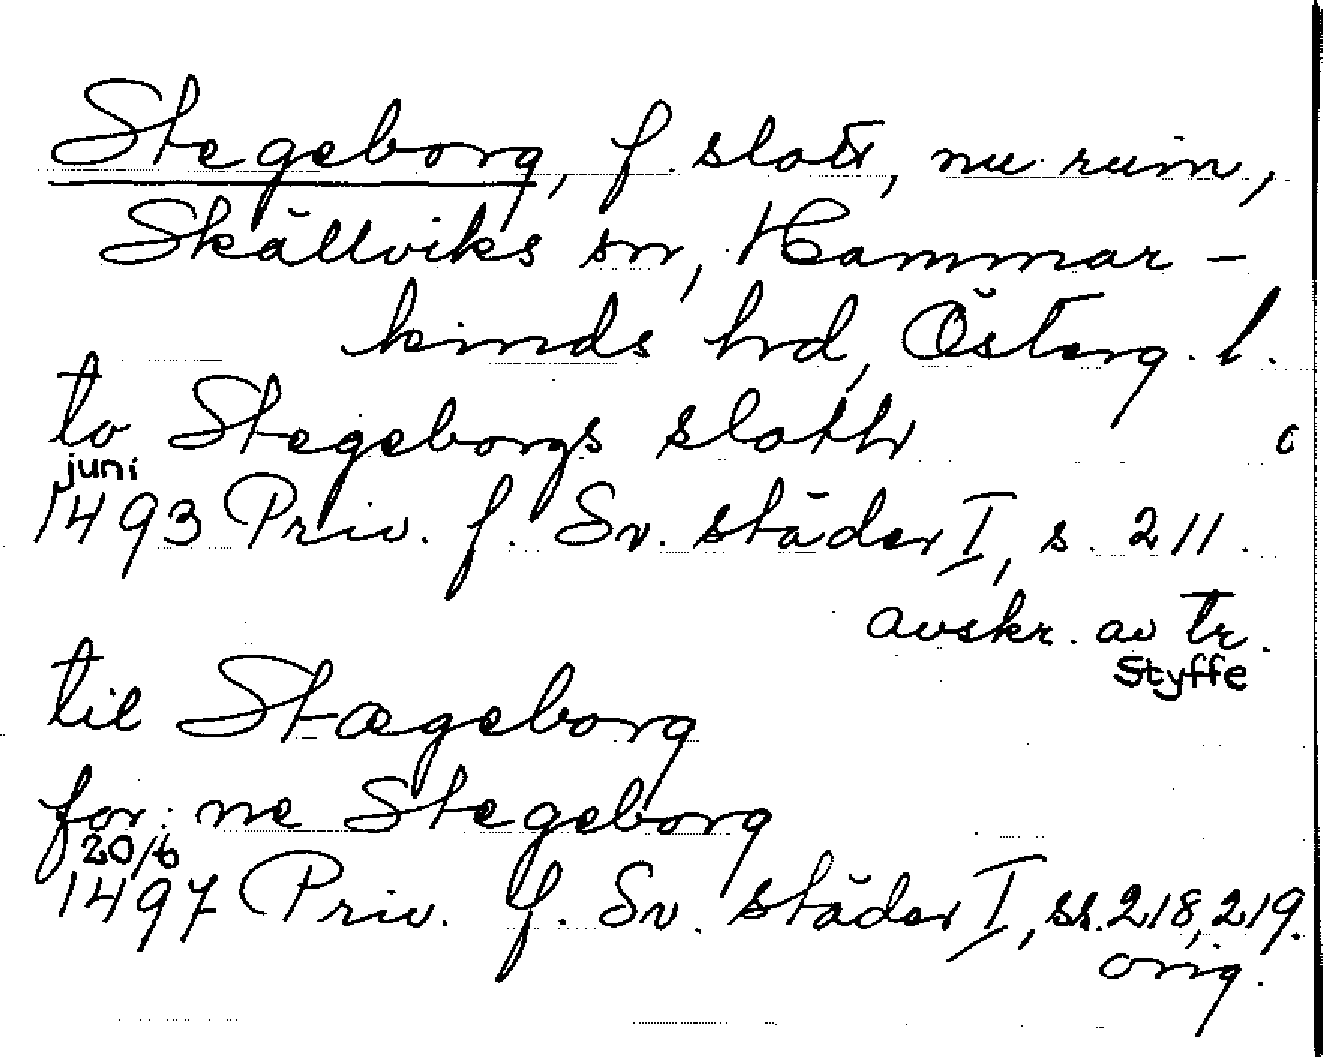 Stegeborg, f. slott, nu ruin,
Skällviks sn, Hammar-
kinds hd, Österg. l.
to Stegeborgs slotth
juni
1493 Priv. f. Sv. städer I, s. 211.
avskr. av tr.
Styffe
til Stægeborg
for: ne Stegeborg
20/6
1497 Priv. f. Sv. städer I, ss. 218, 219.
orig.